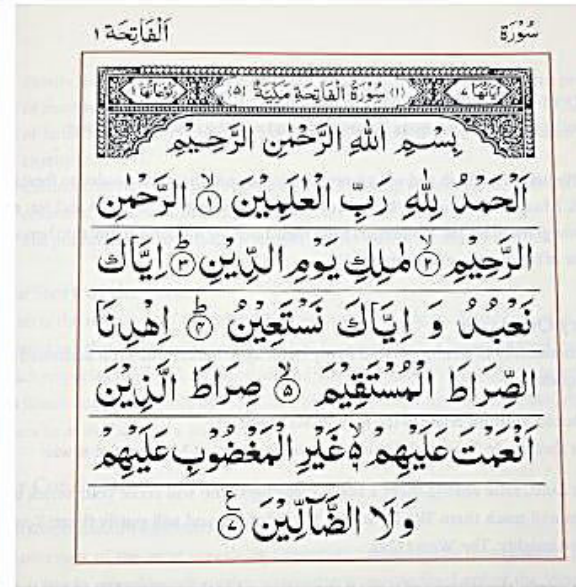 سُوْرَة اَلْفَاتِحَة ١
اٰيَاتُهَا ٧ (١) سُوْرَةُ الْفَاتِحَةِ مَكِّيَّةٌ (٥) رُكُوْعَاتُهَا ١
بِسْمِ اللهِ الرَّحْمٰنِ الرَّحِيْمِ
اَلْحَمْدُ لِلّٰهِ رَبِّ الْعٰلَمِيْنَ ۙ﴿١﴾ الرَّحْمٰنِ
الرَّحِيْمِ ۙ﴿٢﴾ مٰلِكِ يَوْمِ الدِّيْنِ ؕ﴿٣﴾ اِيَّاكَ
نَعْبُدُ وَ اِيَّاكَ نَسْتَعِيْنُ ؕ﴿٤﴾ اِهْدِنَا
الصِّرَاطَ الْمُسْتَقِيْمَ ۙ﴿٥﴾ صِرَاطَ الَّذِيْنَ
اَنْعَمْتَ عَلَيْهِمْ ۙ۬ۦ غَيْرِ الْمَغْضُوْبِ عَلَيْهِمْ
وَلَا الضَّآلِّيْنَ ﴿٧﴾